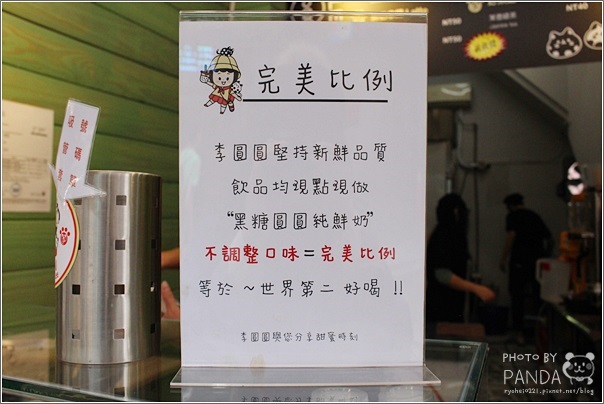 完美比例
李圓圓堅持新鮮品質
飲品均現點現做
“黑糖圓圓純鮮奶”
不調整口味=完美比例
等於 ~世界第二 好喝 !!
李圓圓與您分享甜蜜時刻
NT50
NT40
NT50
PHOTO BY
PANDA
ryohei0221.pixnet.net/blog